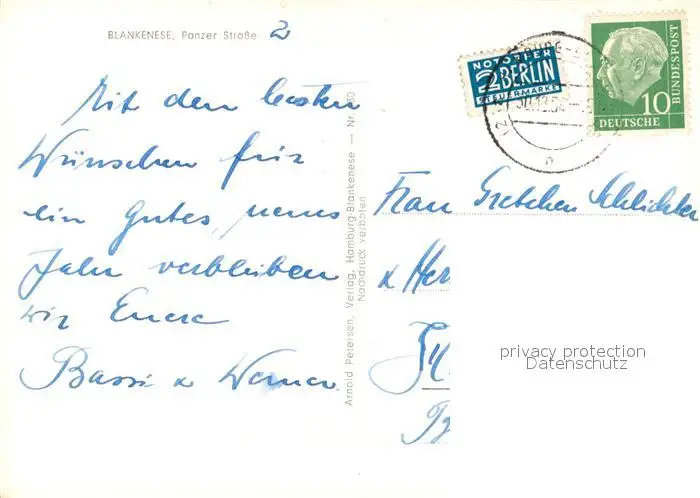 BLANKENESE, Panzer Straße 2
Mit den besten
Wünschen für
ein gutes, neues
Jahr verbleiben
wir Eure
Bassi u Werner
Arnold Petersen, Verlag, Hamburg-Blankenese — Nr.
Nachdruck verboten
NOTOPFER
2 BERLIN
STEUERMARKE
10
DEUTSCHE
BUNDESPOST
Frau Gretchen Schlichter
u Her
privacy protection
Datenschutz